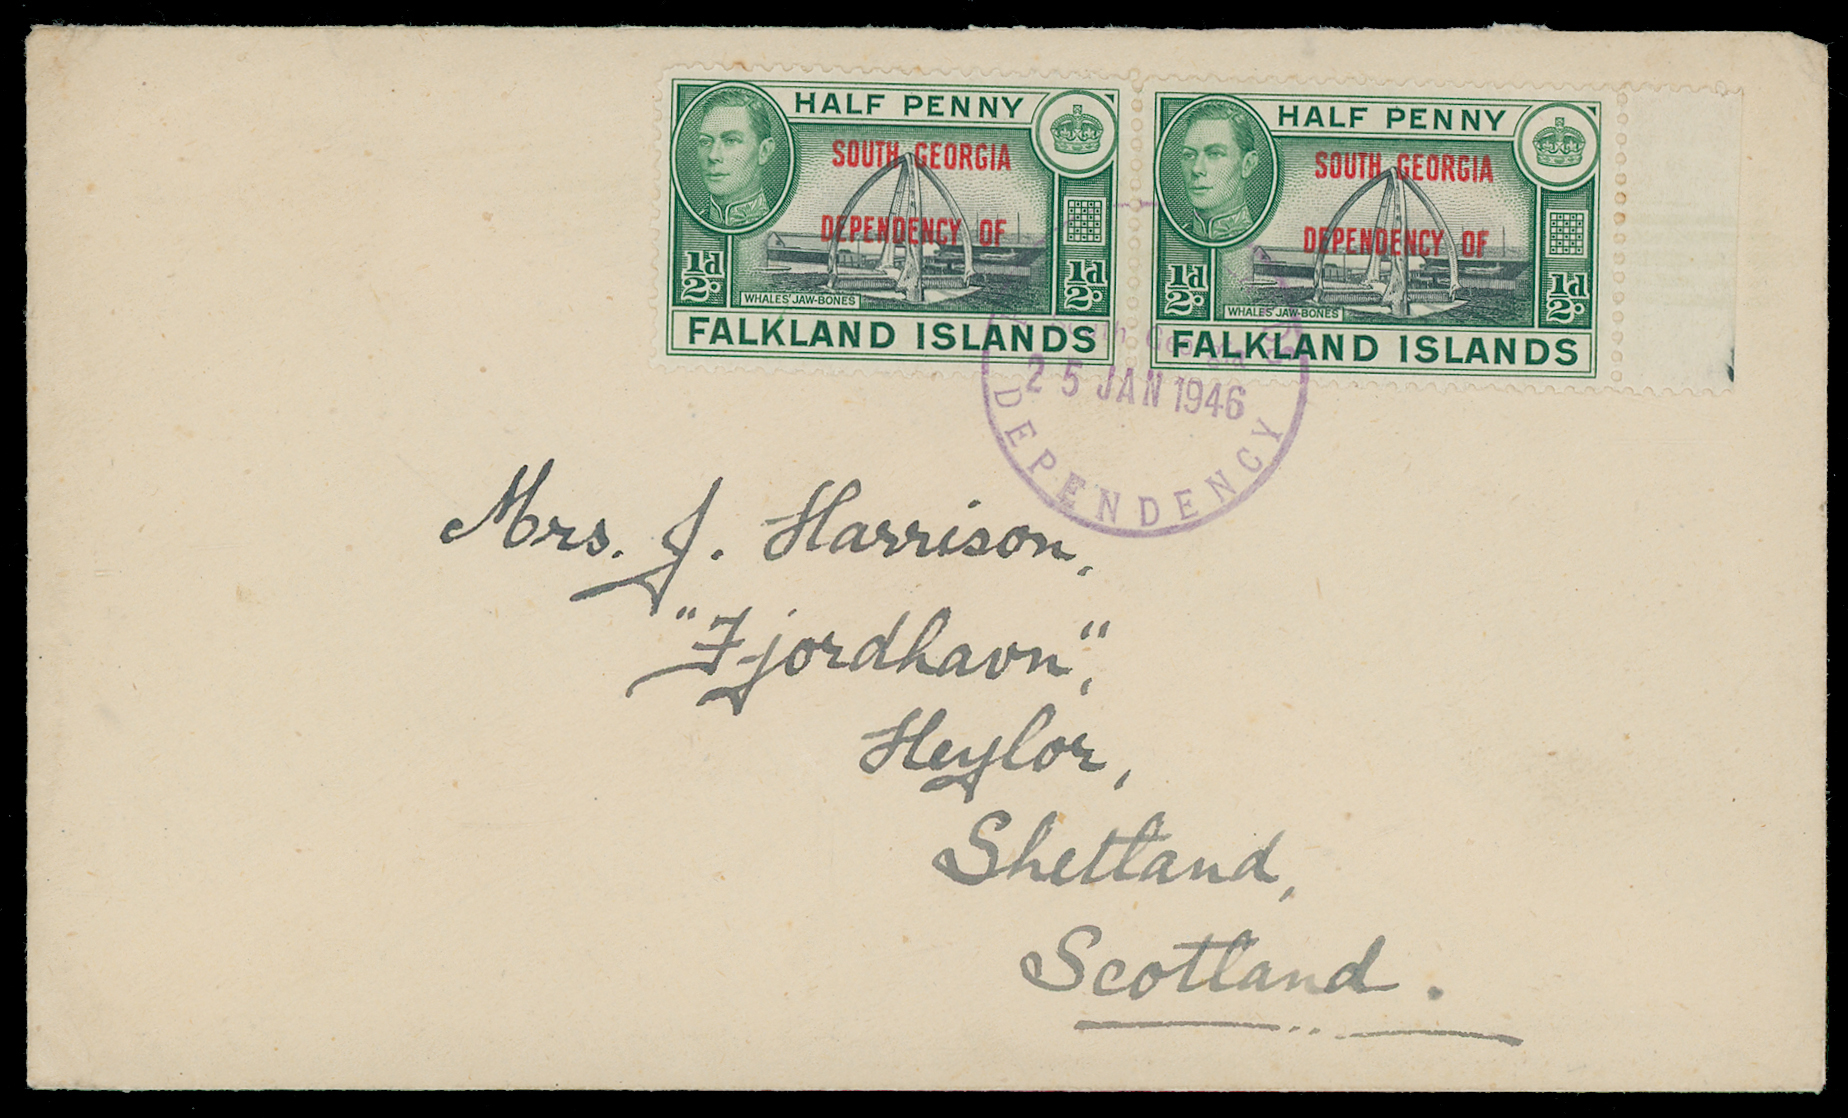 HALF PENNY
SOUTH GEORGIA
DEPENDENCY OF
½d
½d
WHALES' JAW-BONES
FALKLAND ISLANDS
HALF PENNY
SOUTH GEORGIA
DEPENDENCY OF
½d
½d
WHALES' JAW-BONES
FALKLAND ISLANDS
South Georgia
25 JAN 1946
DEPENDENCY
Mrs. J. Harrison,
"Fjordhavn",
Heylor,
Shetland,
Scotland.